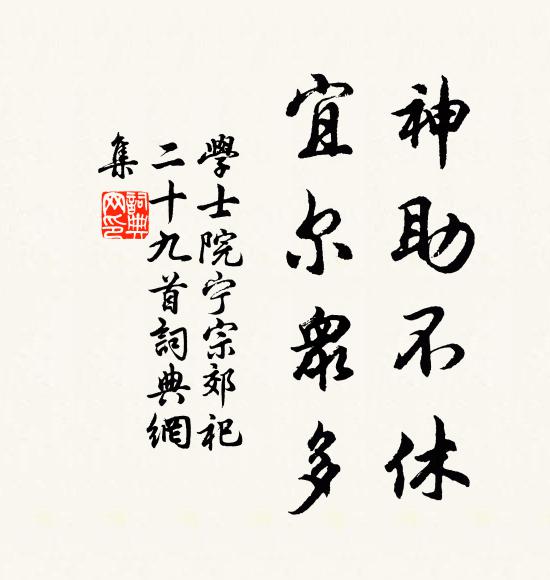 神助不休
宜尔眾多
學士院宁宗郊祀
二十九首詞典網
集
詞典
网印